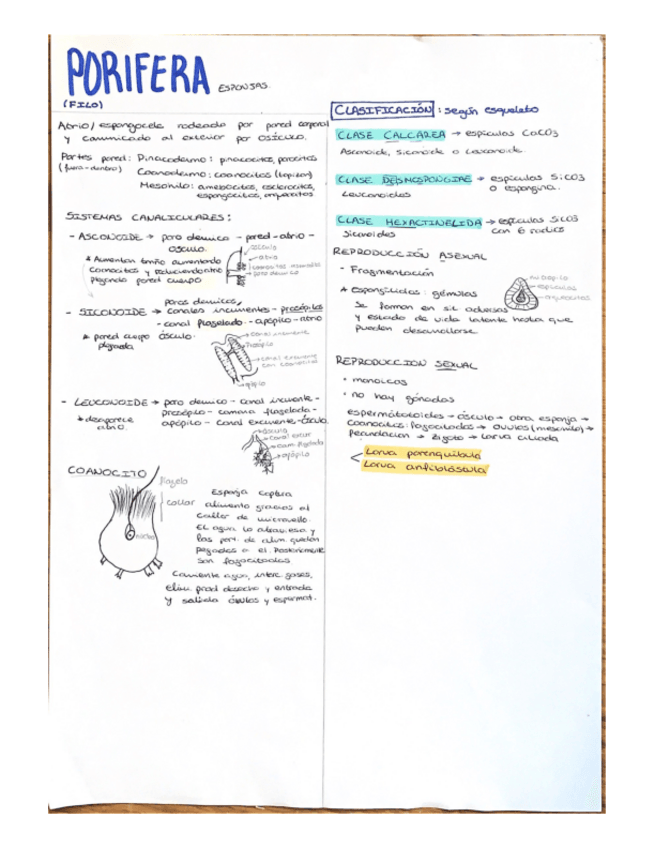 PORIFERA ESPONJAS
(FILO)
Atrio/espongocele rodeado por pared corporal
y comunicado al exterior por OSÍCULO.
Partes pared: Pinacodermo: pinacocitos, porocitos
(fuera-dentro) Coanodermo: coanocitos (tapizan)
Mesohilo: amebocitos, esclerocitos,
espongocitos, arqueocitos
SISTEMAS CANALICULARES:
- ASCONOIDE → poro dérmico - pared - atrio -
ósculo.
* Aumentan tmño aumentando
coanocitos y
plegando pared cuerpo
ósculo
atrio
poro dérmico
poros dérmicos,
- SICONOIDE → canales incurrentes - prosópilos
- canal flagelado - apópilo - atrio
* pared cuerpo ósculo.
plegada
canal incurrente
Prosópilo
canal excurrente
con coanocitos
apópilo
- LEUCONOIDE → poro dérmico - canal incurrente -
prosópilo - camara flagelada -
* desaparece apópilo - canal excurrente - ósculo
atrio.
ósculo
canal excurr
cam. flagelada
apópilo
COANOCITO
flagelo
collar
núcleo
Esponja captura
alimento gracias al
collar de microvello.
El agua lo atraviesa y
las part. de alim. quedan
pegadas a el. Posteriormente
son fagocitadas
Corriente agua, interc gases,
elim prod desecho y entrada
y salida óvulos y espermat.
CLASIFICACIÓN: según esqueleto
CLASE CALCAREA → espículas CaCO3
Asconoide, siconoide o leuconoide.
CLASE DESMOSPONGIAE → espículas SiCO3
o espongina.
Leuconoides
CLASE HEXACTINELIDA → espículas SiCO3
con 6 radios
Siconoides
REPRODUCCIÓN ASEXUAL
- Fragmentación
* Espongílidos: gémulas
Se forman en sit adversas
y estado de vida latente hasta que
puedan desarrollarse.
micropilo
espículas
arqueocitos
REPRODUCCION SEXUAL
· monoicas
· no hay gónadas
espermatozoides → ósculo → otra esponja →
coanocitos: fagocitados → óvulos (mesohilo) →
fecundación → zigoto → larva ciliada
< Larva parenquímula
Larva anfiblástula